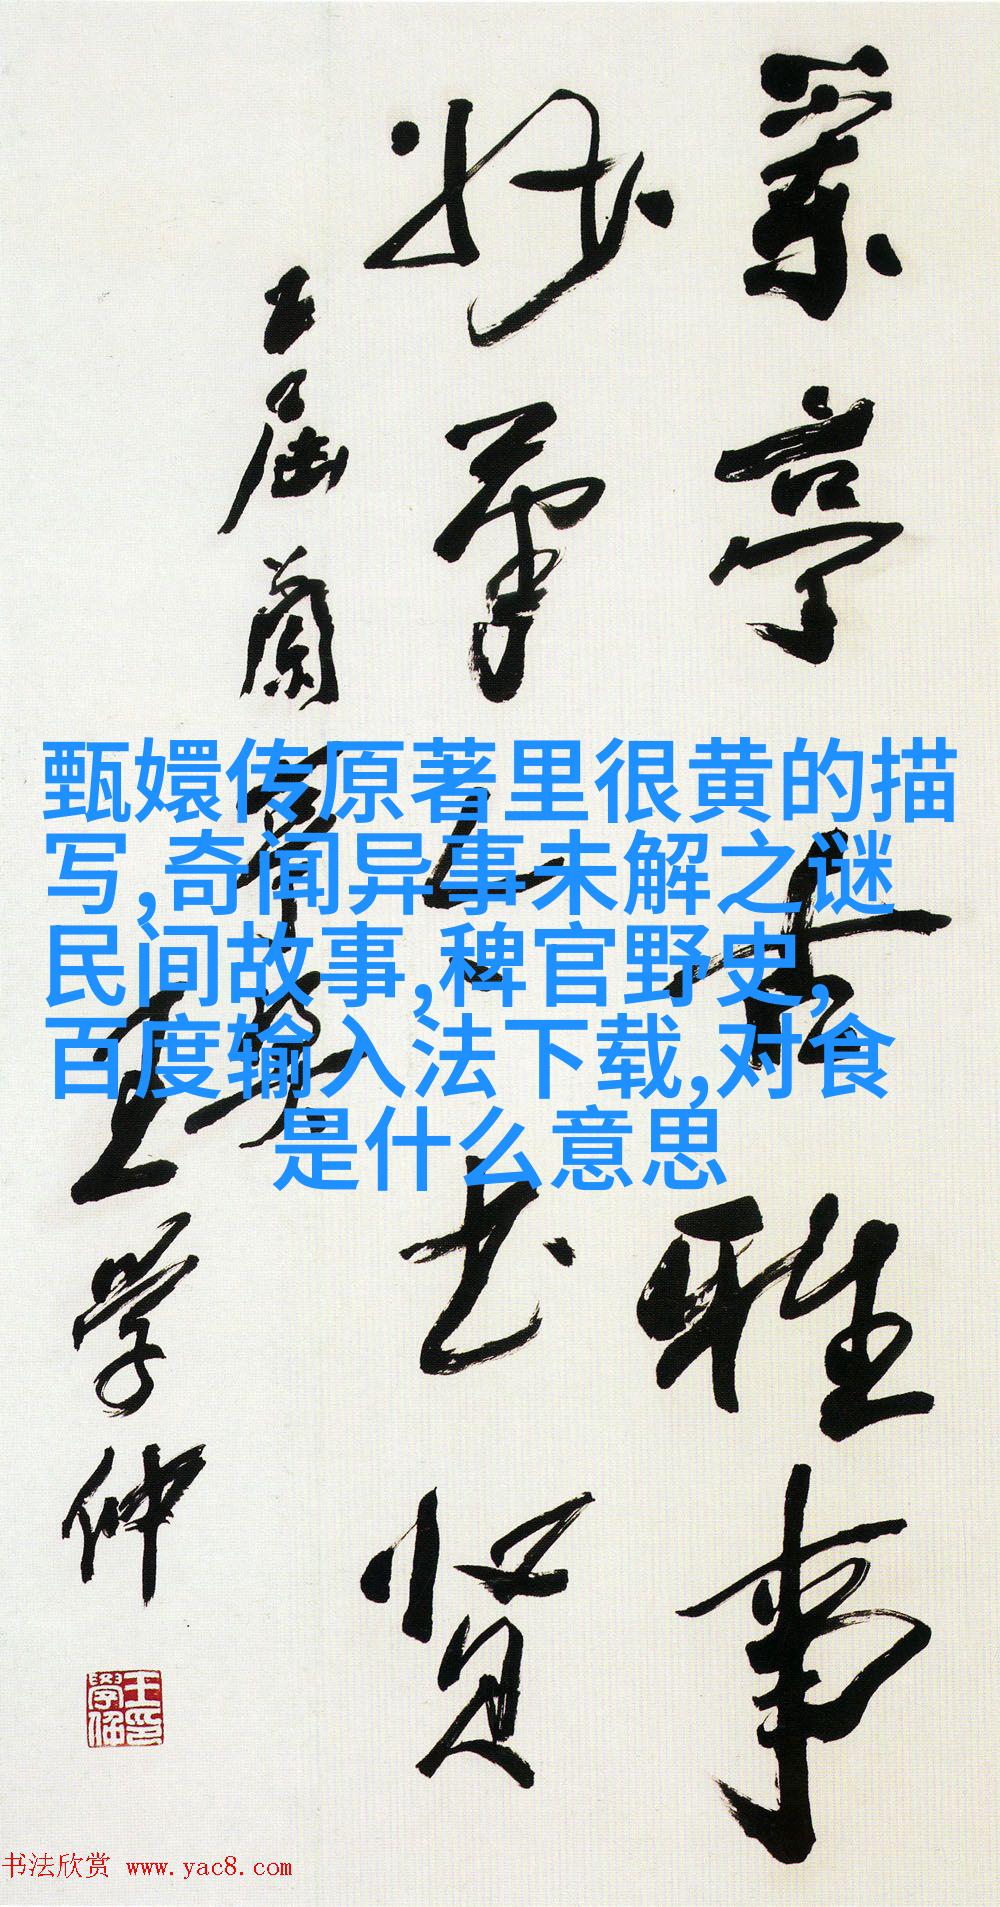 兰亭古雅事
妙笔
书贤
五届兰亭
王学仲
甄嬛传原著里很黄的描
写,奇闻异事未解之谜
民间故事,稗官野史,
百度输入法下载,对食
是什么意思
书法欣赏 www.yac8.com